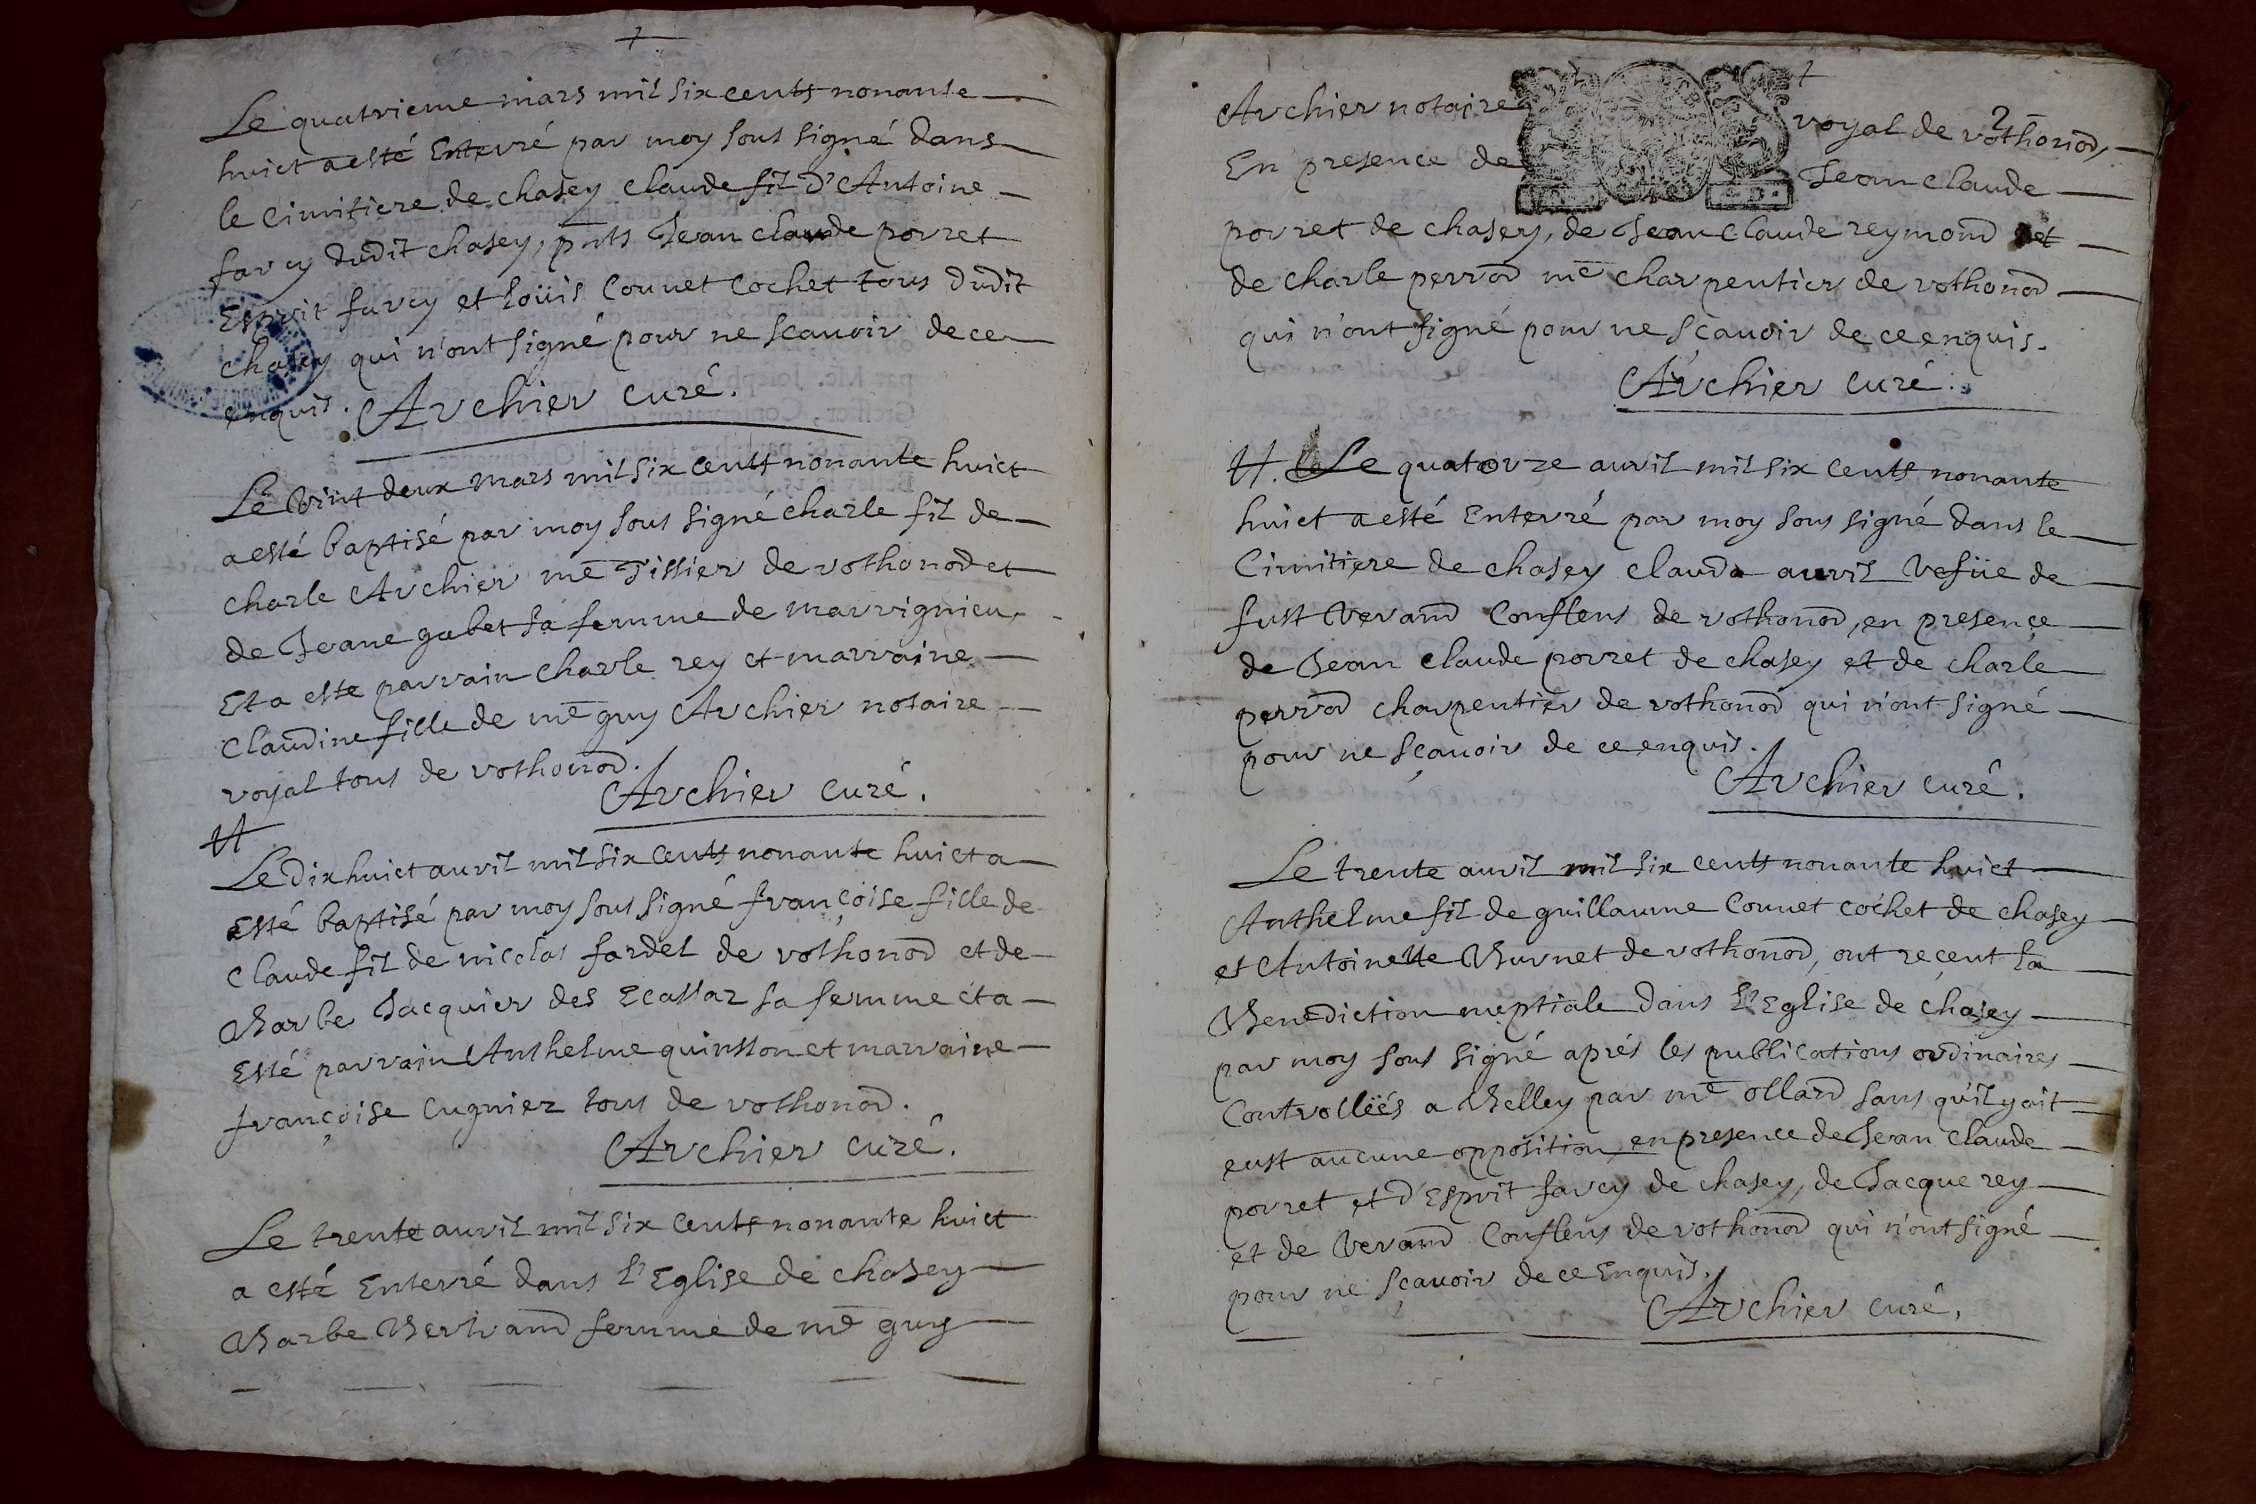 Le quatrieme mars mil six cents nonante
huict a esté Enterré par moy sous signé dans
le Cimitiere de chasey Claude fil d'Antoine
farcy dudit chasey, pnts Jean claude porret
Esprit farcy et Loüis Couuet Cochet tous dudit
chasey qui n'ont signé pour ne scauoir de ce
enquis. Archier curé.
Le Vint deux mars mil six cents nonante huict
a esté baptisé par moy sous signé charle fil de
charle Archier me Tissier de vothonod et
de Jeane gabet sa femme de marrignieu,
Et a este parrain charle rey et marraine
Claudine fille de me guy Archier notaire
royal tous de vothonod.
Archier curé.
Le Dixhuict auril mil six cents nonante huict a
Esté baptisé par moy sous signé françoise fille de
Claude fil de nicolas fardel de vothonod et de
Barbe Jacquier des Ecassaz sa femme et a
Esté parrain Anthelme quinsson et marraine
françoise Cugnier tous de vothonod.
Archier curé.
Le trente auril mil six cents nonante huict
a esté Enterré dans l'Eglise de chasey
Barbe Bertrand femme de me guy
2
Archier notaire royal de vothonod,
En presence de Jean Claude
porret de chasey, de Jean Claude reymond et
de charle perrod me charpentier de vothonod
qui n'ont signé pour ne scauoir de ce enquis.
Archier curé.
Le quatorze auril mil six cents nonante
huict a esté Enterré par moy sous signé dans le
Cimitiere de chasey clauda auril Vefüe de
fust Verand Conflens de vothonod, en presence
de Jean Claude porret de chasey et de charle
perrod charpentier de vothonod qui n'ont signé
pour ne sçauoir de ce enquis.
Archier curé.
Le trente auril mil six cents nonante huict
Anthelme fil de guillaume Couuet cochet de chasey
et Antoinette Burnet de vothonod, ont reçeut la
Benediction nuptiale dans l'Eglise de chasey
par moy sous signé aprés les publications ordinaires
Controlleés a Belley par me ollard sans qu'il y ait
eust aucune opposition, en presence de Jean Claude
porret et d'Esprit farcy de chasey, de Jacque rey
et de Verand Conflens de vothonod qui n'ont signé
pour ne sçauoir de ce Enquis.
Archier curé.